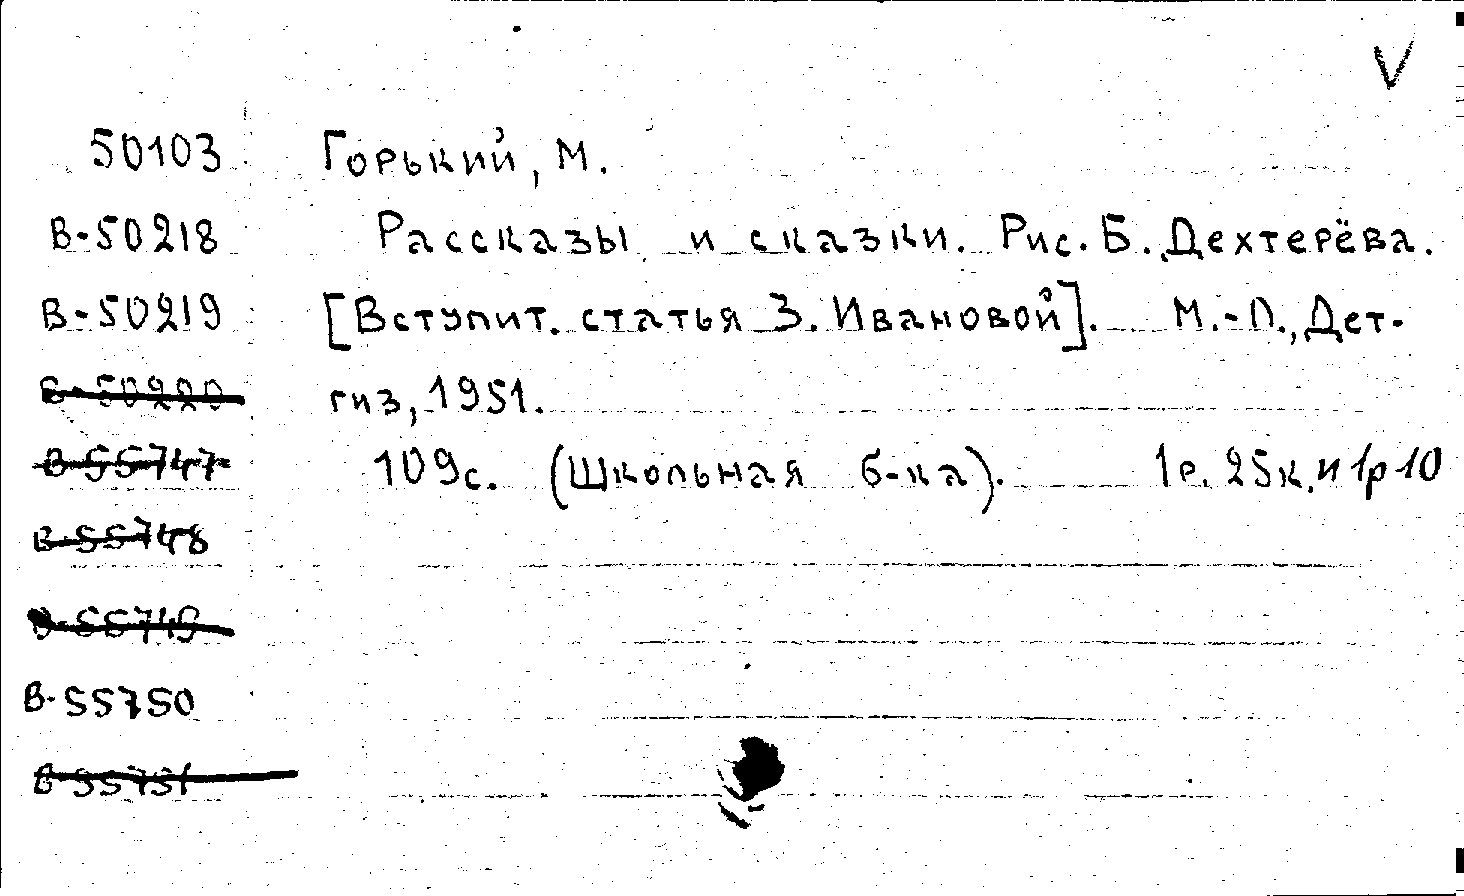 V
50103 Горький, М.
В-50218 Рассказы и сказки. Рис. Б. Дехтерёва.
В-50219 [Вступит. статья З. Ивановой]. М.-Л., Дет-
В-50220 гиз, 1951.
В-55747 109с. (Школьная б-ка). 1р. 25к. и 1р 10
В-55748
В-55749
В-55750
В-55751